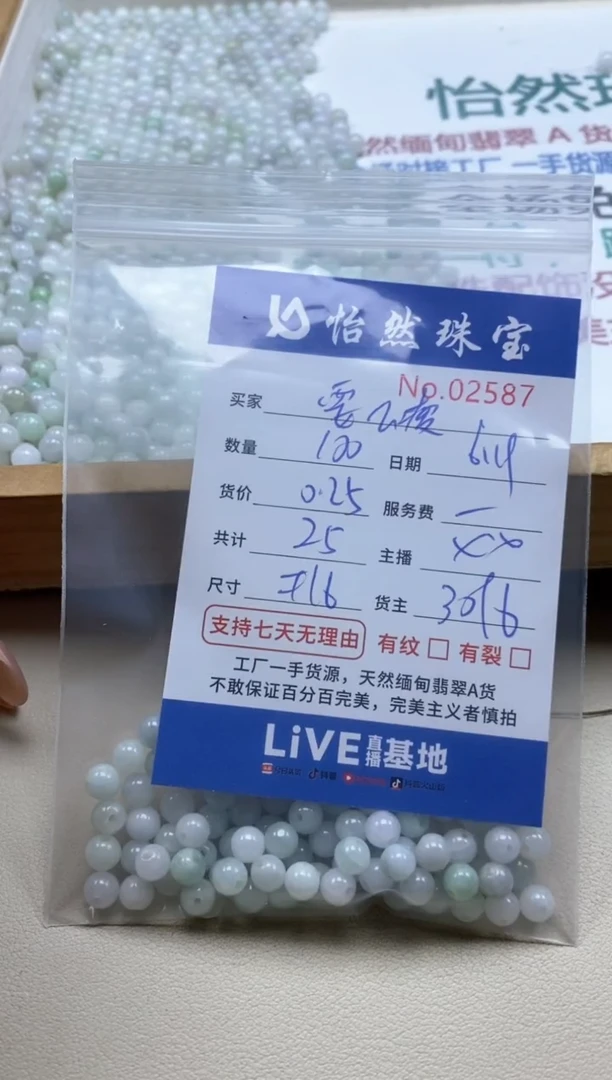 怡然珠
然缅甸翡翠 A 货
对接工厂 一手货源
怡然珠宝
No.02587
买家
数量 100 日期 6.14
货价 0.25 服务费 一
共计 25 主播 XX
尺寸 货主
支持七天无理由 有纹 □ 有裂 □
工厂一手货源，天然缅甸翡翠A货
不敢保证百分百完美，完美主义者慎拍
LiVE 直播 基地